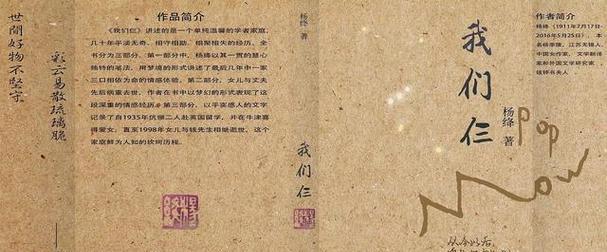 世间好物不坚牢
彩云易散琉璃脆
作品简介
《我们仨》讲述的是一个单纯温馨的学者家庭,
几十年平淡无奇、相守相助、相聚相失的经历。全
书分为三部分。第一部分中,杨绛以其一贯的慧心
独特的笔法,用梦境的形式讲述了最后几年中一家
三口相依为命的情感体验。第二部分,女儿与丈夫
先后病重去世,作者在书中以梦幻的形式表现了这
段深重的情感经历。第三部分,以平实感人的文字
记录了自1935年伉俪二人赴英国留学,并在牛津喜
得爱女,直至1998年女儿与钱先生相继逝世,这个
家庭鲜为人知的坎坷历程。
杨绛
我们仨
我们仨
杨绛 著
Pop
Mow
从今以后,
作者简介
杨绛(1911年7月17日-
2016年5月25日),本
名杨季康,江苏无锡人,
中国女作家、文学翻译
家和外国文学研究家、
钱钟书夫人